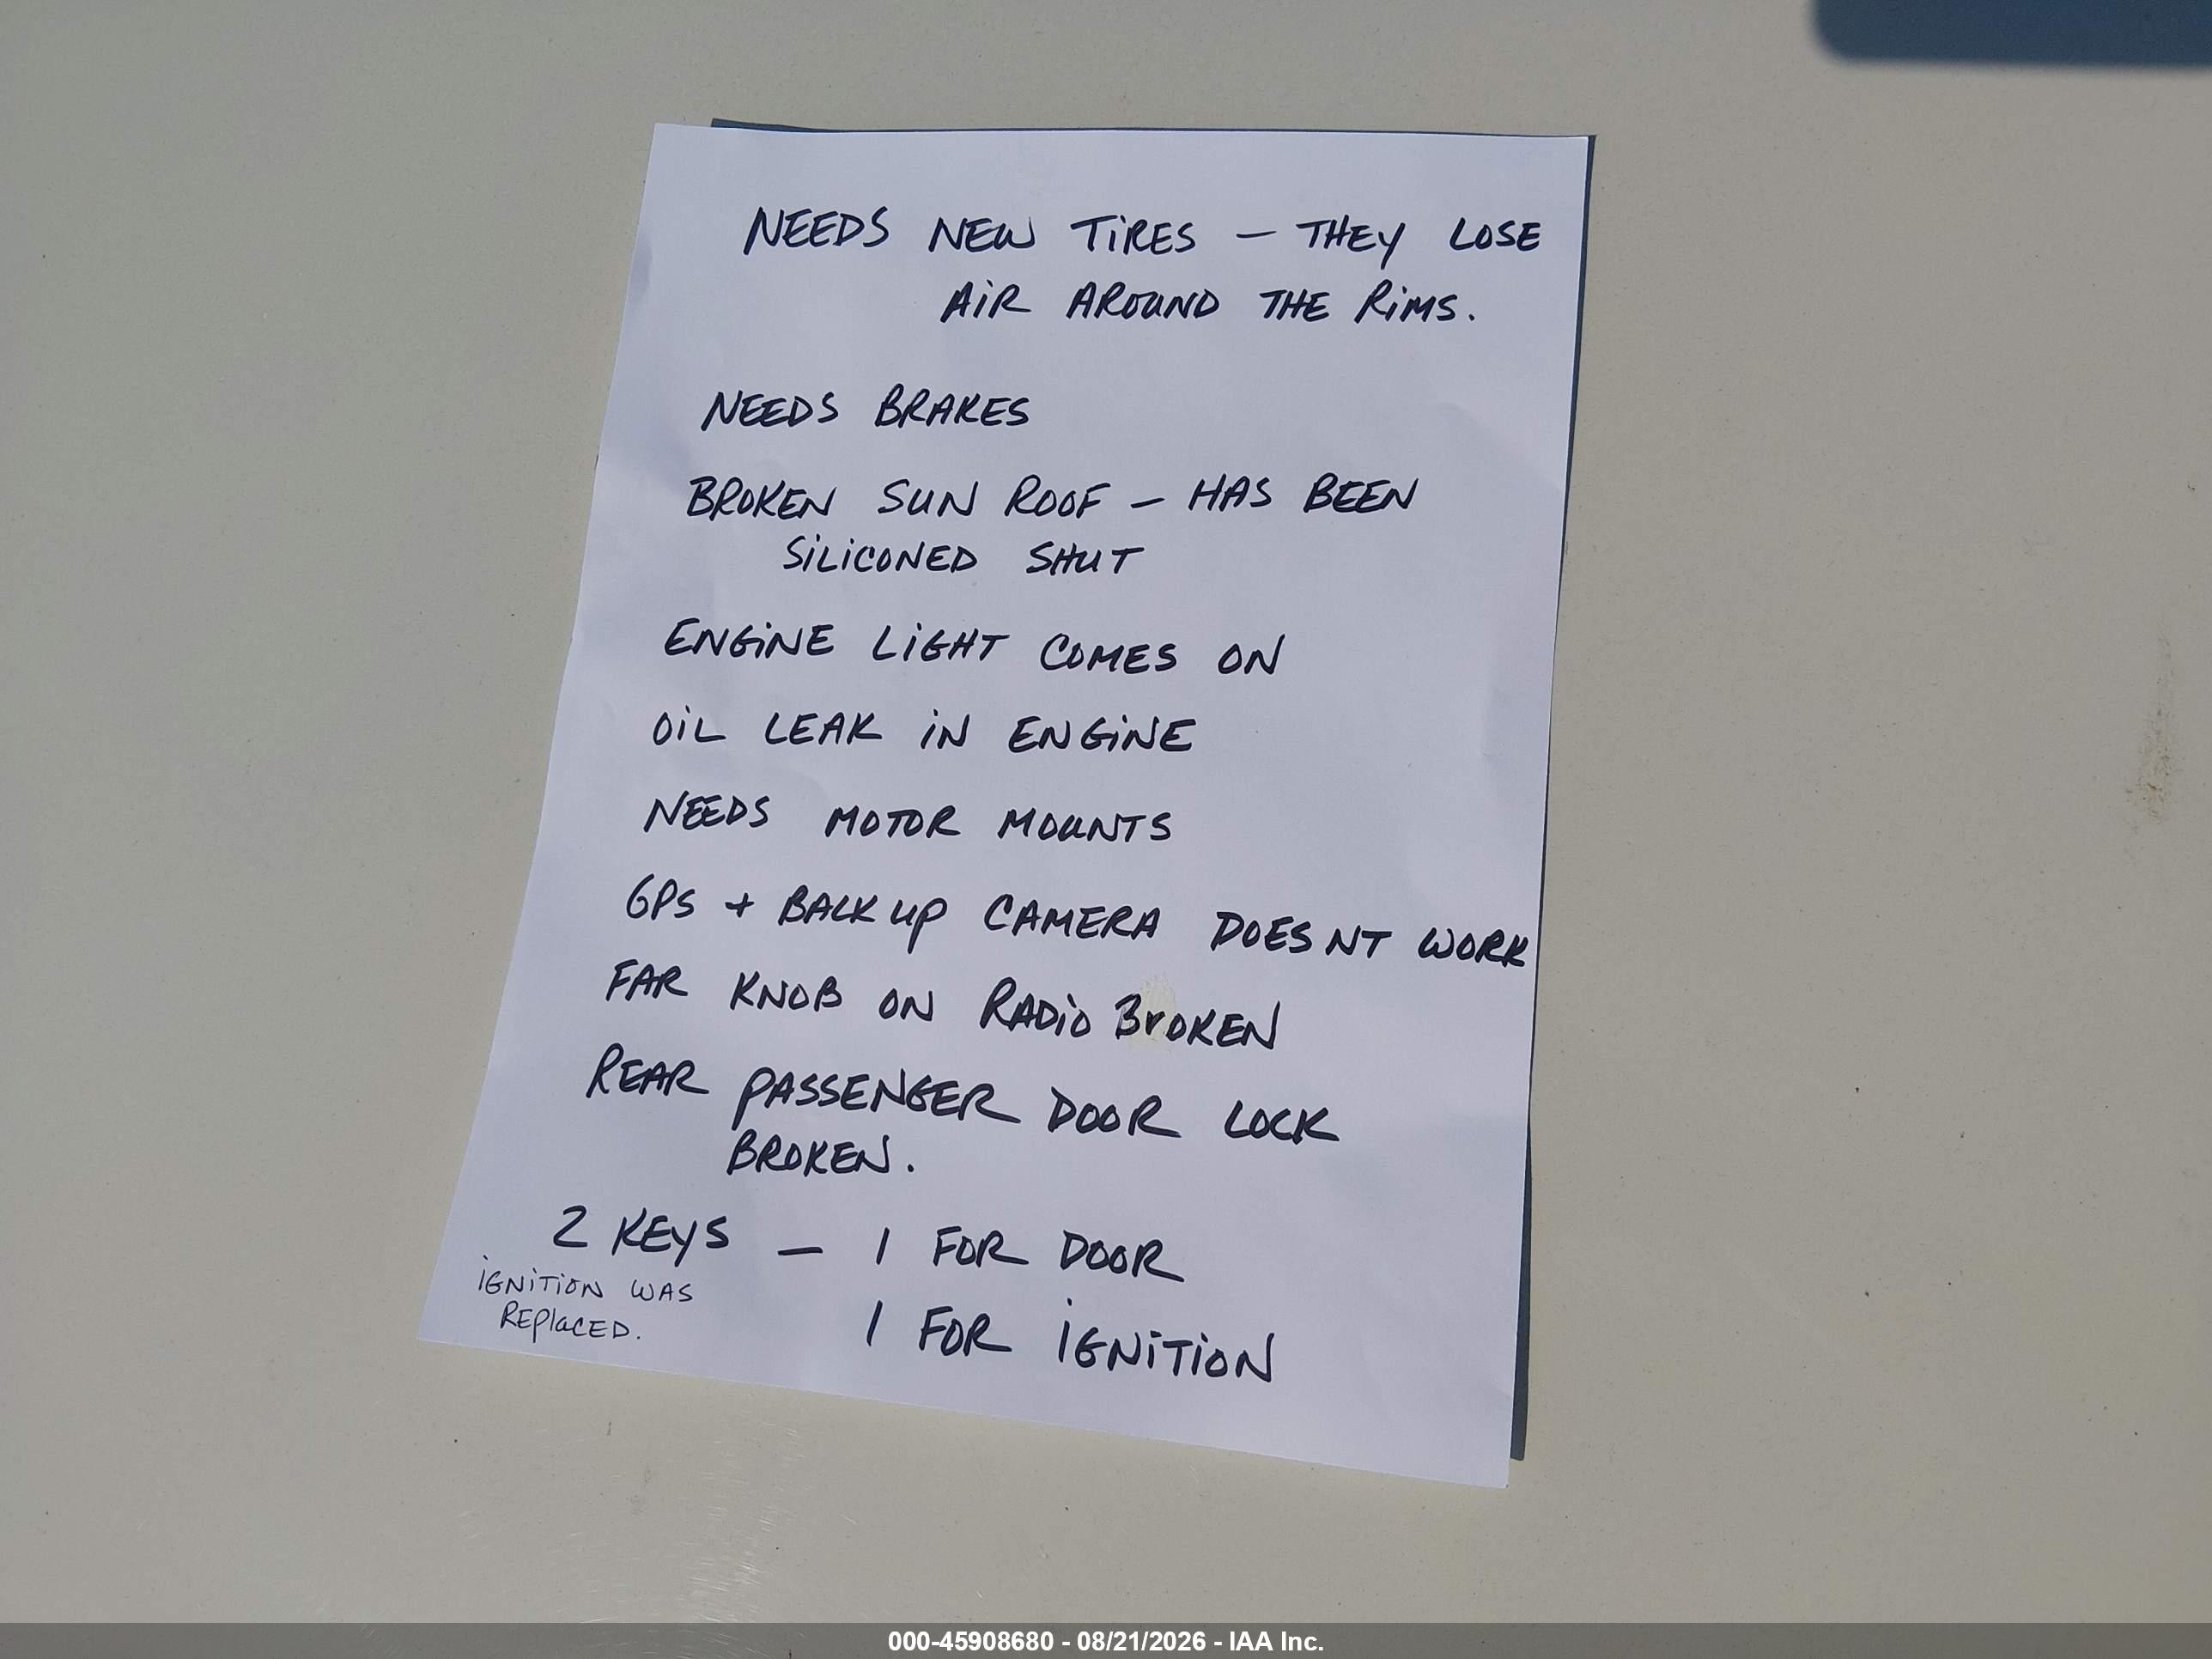 NEEDS NEW TIRES - THEY LOSE
AIR AROUND THE RIMS.
NEEDS BRAKES
BROKEN SUN ROOF - HAS BEEN
SILICONED SHUT
ENGINE LIGHT COMES ON
OIL LEAK IN ENGINE
NEEDS MOTOR MOUNTS
GPS + BACK UP CAMERA DOESNT WORK
FAR KNOB ON RADIO BROKEN
REAR PASSENGER DOOR LOCK
BROKEN.
2 KEYS - 1 FOR DOOR
IGNITION WAS
REPLACED.
1 FOR IGNITION
000-45908680 - 08/21/2026 - IAA Inc.